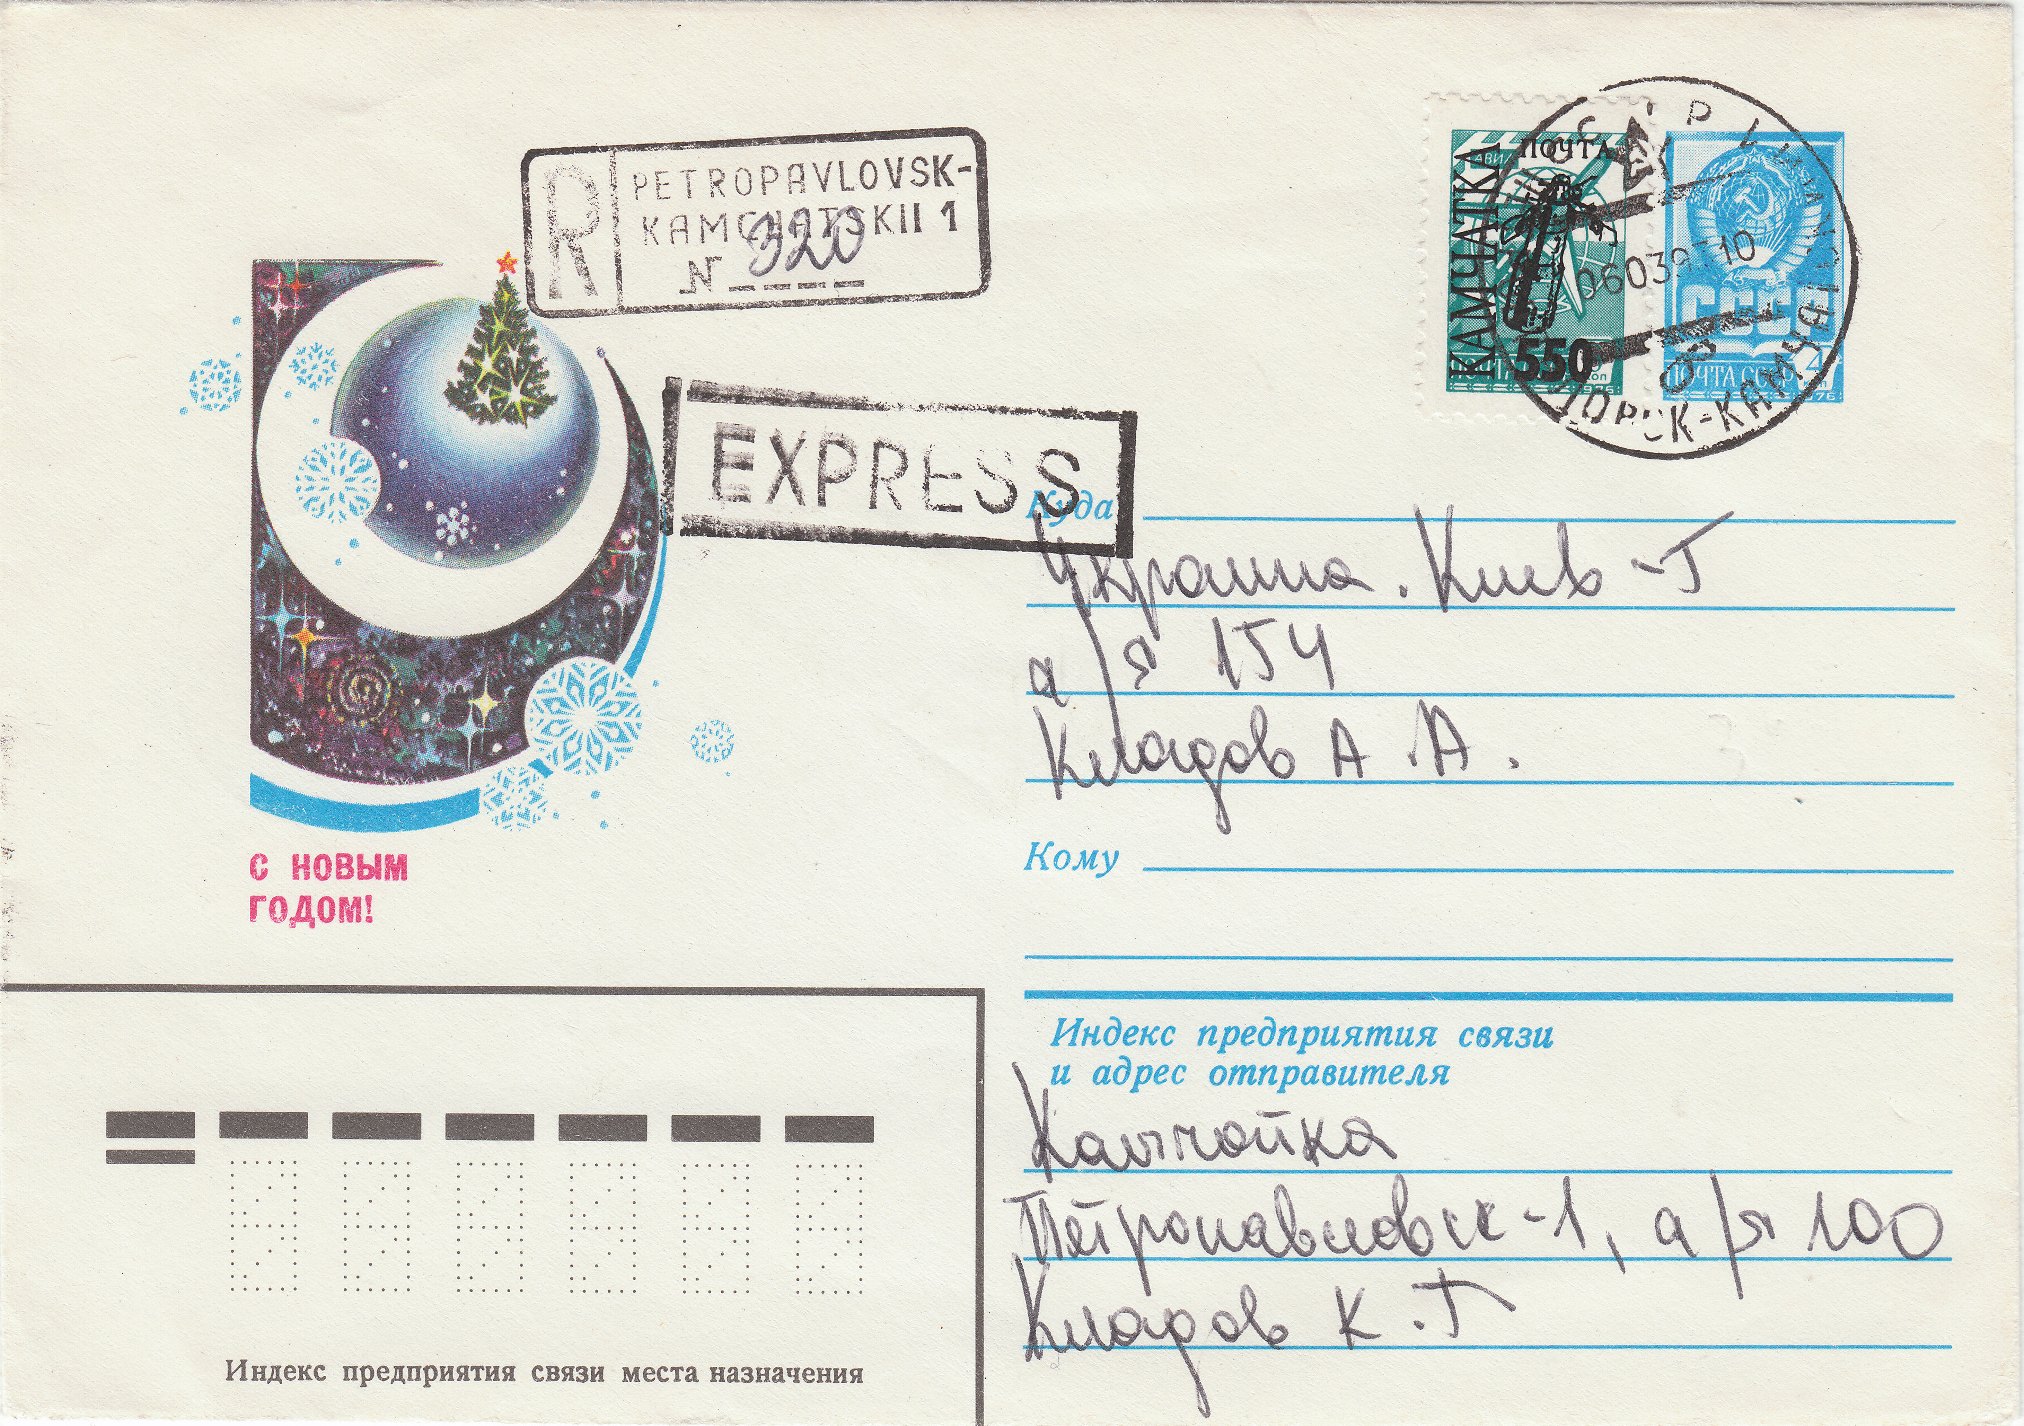 R
PETROPAVLOVSK-
KAMCHATSKII 1
N 320
EXPRESS
КАМЧАТКА
ПОЧТА
550
1976
СССР
ПОЧТА СССР 4
коп
1976
С НОВЫМ
ГОДОМ!
Куда
Украина. Киев-1
а/я 154
Кладов А.А.
Кому
Индекс предприятия связи
и адрес отправителя
Камчатка
Петропавловск-1, а/я 100
Кладов К.Г
Индекс предприятия связи места назначения